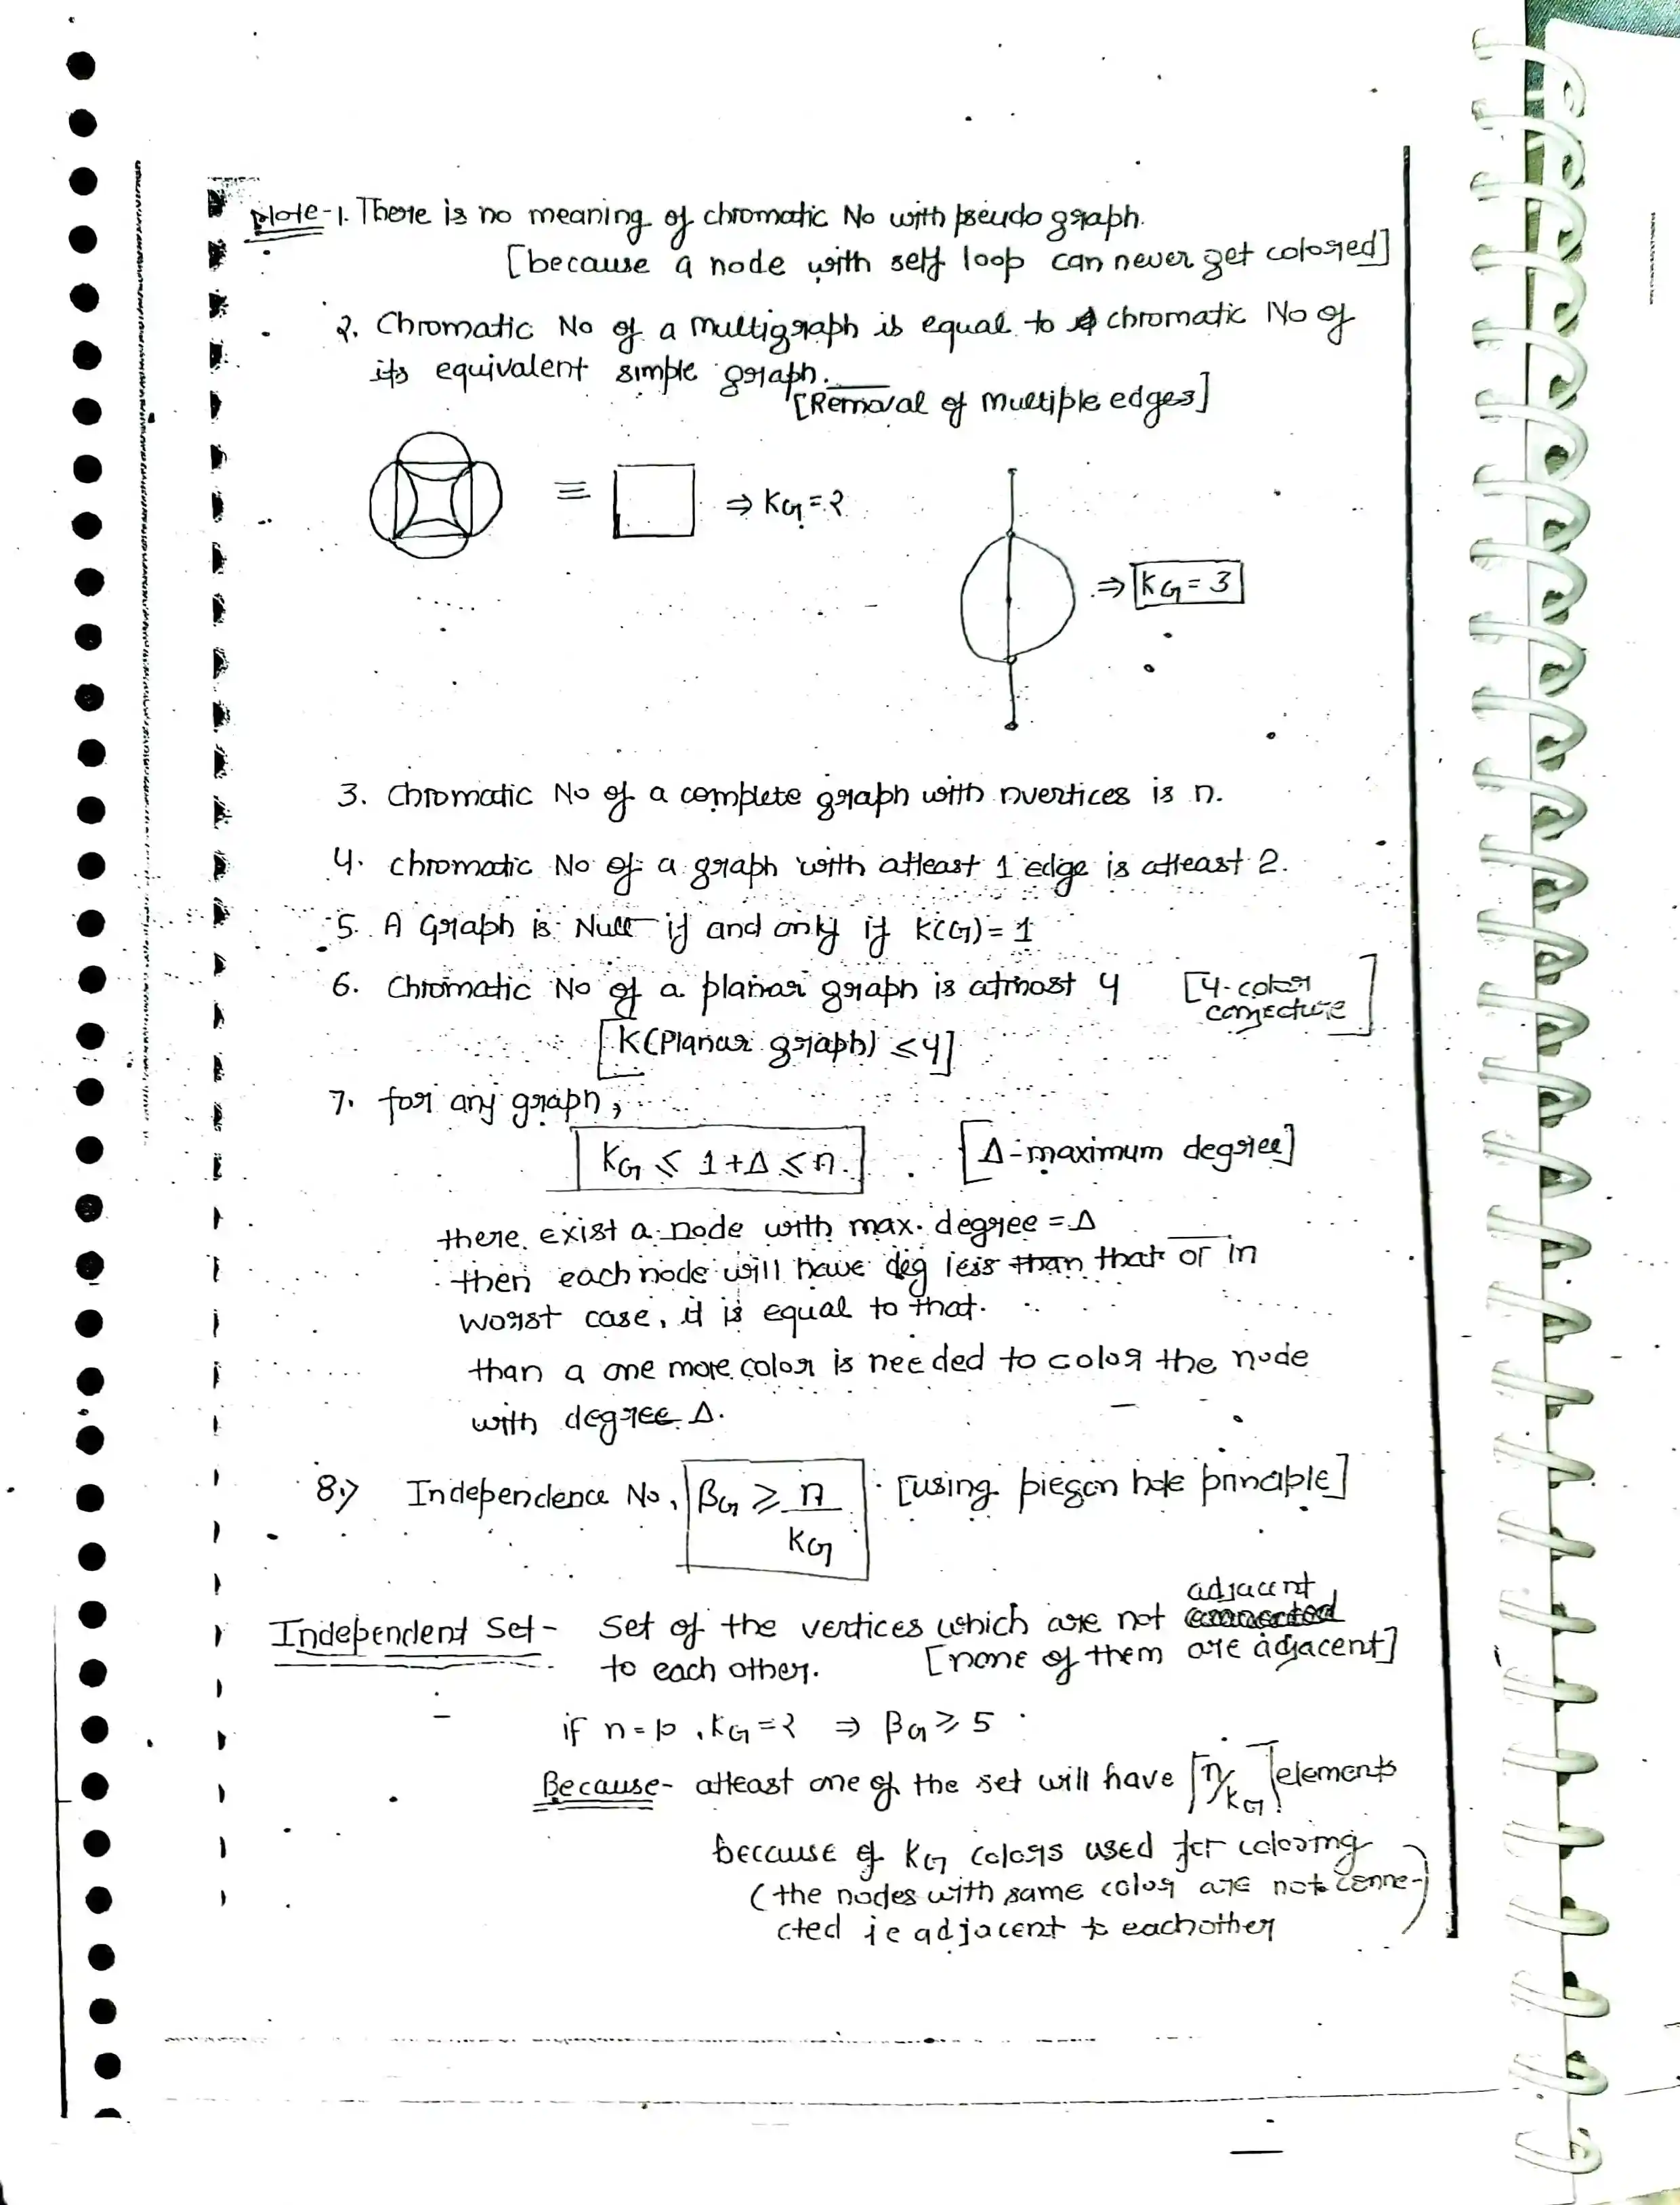 Note-1. There is no meaning of chromatic No with pseudo graph.
[because a node with self loop can never get colored]
2. Chromatic No of a multigraph is equal to chromatic No of
its equivalent simple graph.
[Removal of multiple edges]
≡ ⇒ KG = 2
⇒ KG = 3
3. Chromatic No of a complete graph with nvertices is n.
4. chromatic No of a graph with atleast 1 edge is atleast 2.
5. A Graph is Null if and only if K(G) = 1
6. Chromatic No of a planar graph is atmost 4 [4-color
conjecture]
[K(Planar graph) ≤ 4]
7. for any graph,
KG ≤ 1+Δ ≤ n. [Δ-maximum degree]
there exist a node with max. degree = Δ
then each node will have deg less than that or in
worst case, it is equal to that.
than a one more color is needed to color the node
with degree Δ.
8.) Independence No, βG ≥ n/KG [using piegon hole principle]
adjacent
Independent Set - Set of the vertices which are not connected
to each other. [none of them are adjacent]
if n = 10, KG = 2 ⇒ βG ≥ 5
Because - atleast one of the set will have ⌈n/KG⌉ elements
because of KG colors used for coloring
(the nodes with same color are not conne-
cted ie adjacent to eachother)